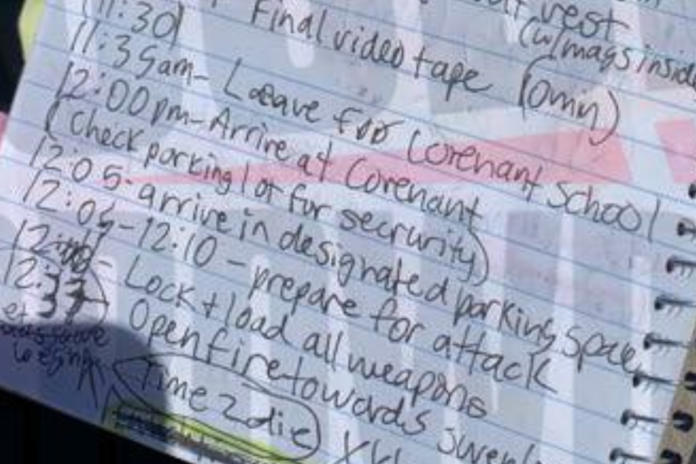 vest
(w/mags inside
11:30 Final video tape (0min)
11:35am- Leave for Covenant School
12:00pm- Arrive at Covenant
(check parking lot for secrurity)
12:05- arrive in designated parking space
12:06-12:10- prepare for attack
Lock + load all weapons
12:33 Open fire towards
Time 2 die